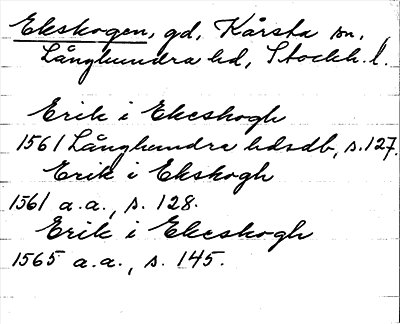 Ekskogen, gd, Kårsta sn,
Långhundra hd, Stockh. l.
Erik i Ekeskogh
1561 Långhundra hdsdb, s. 127.
Erik i Ekskogh
1561 a.a., s. 128.
Erik i Ekeskogh
1565 a.a., s. 145.